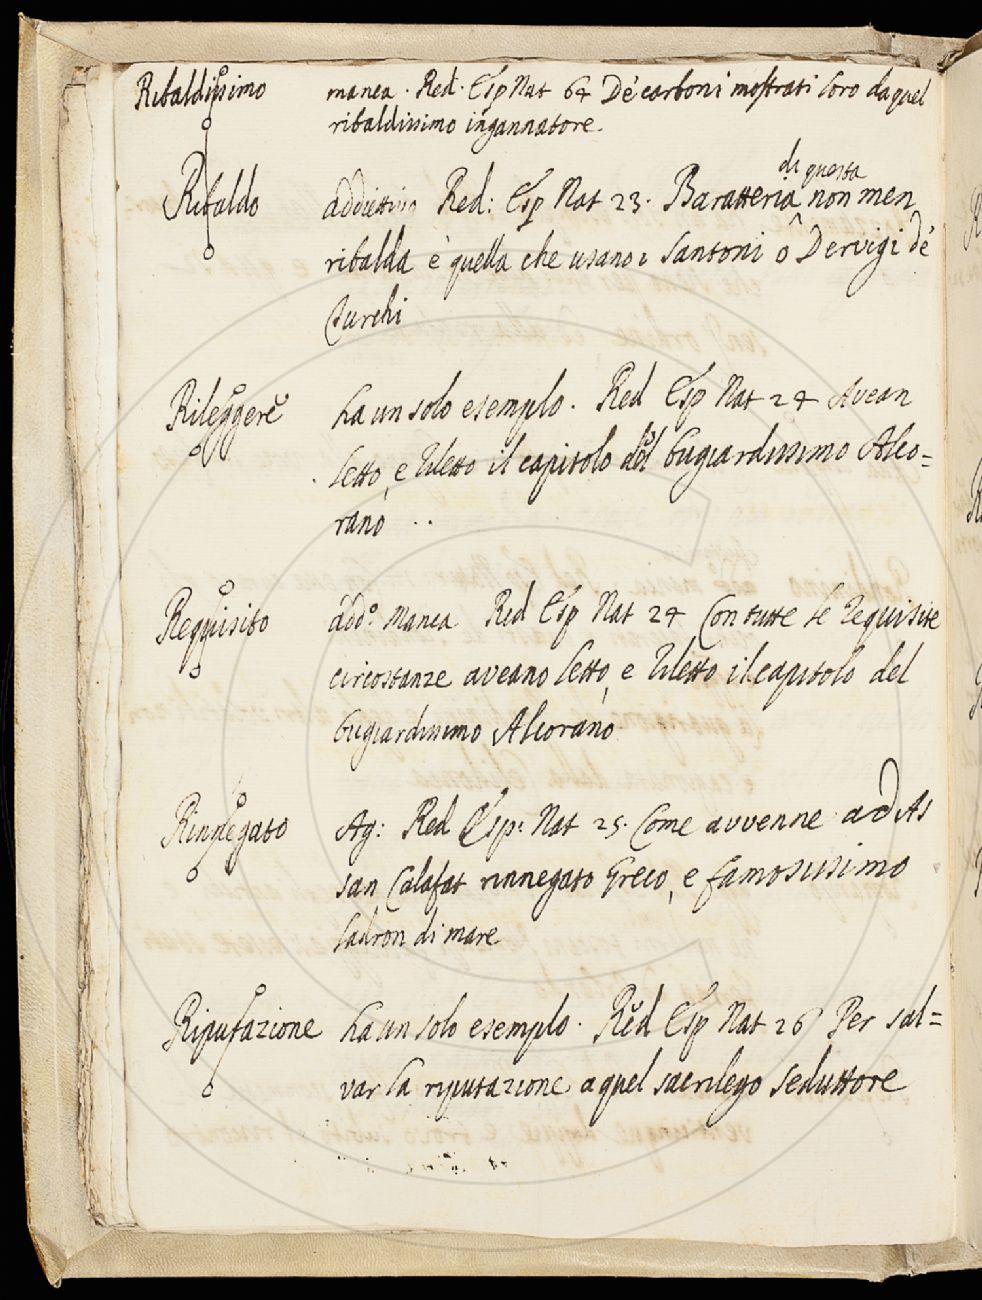 Ribaldissimo manca. Red. Esp Nat 64 De' carboni mostrati loro da quel
ribaldissimo ingannatore.
di questa
Ribaldo addiettivo Red: Esp Nat 23. Baratteria non men
ribalda è quella che usano i Santoni ò Dervigi de'
Turchi
Rileggere ha un solo esemplo. Red Esp Nat 24 Avean
letto, e riletto il capitolo del bugiardissimo Alco=
rano
Requisito add.º manca Red Esp Nat 24 Con tutte le requisite
circostanze aveano letto, e riletto il capitolo del
bugiardissimo Alcorano
Rinnegato Ag: Red Esp: Nat 25. Come avvenne ad As
san Calafat rinnegato Greco, e famosissimo
ladron di mare
Riputazione ha un solo esemplo. Red Esp Nat 26 Per sal=
var la riputazione a quel sacrilego seduttore